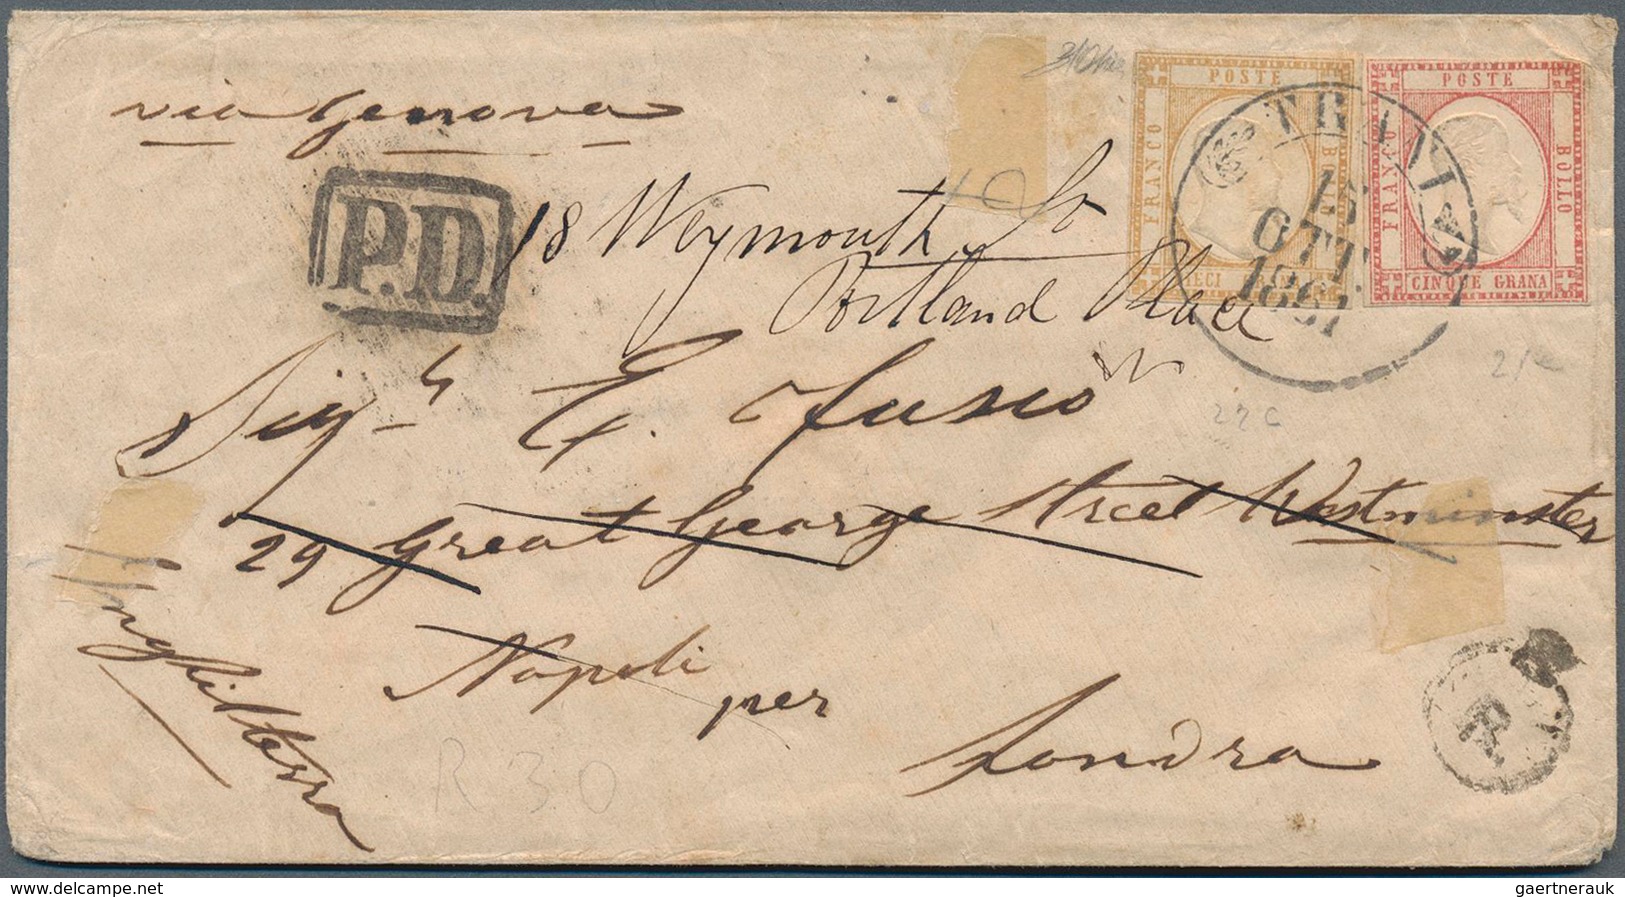 via Genova
P.D.
18 Weymouth St
Portland Place
W
Sigr E. Fusco
29 Great George Street Westminster
Napoli per Londra
Inghilterra
POSTE
FRANCO
TRANI
15
OTT
1861
POSTE
FRANCO
BOLLO
CINQUE GRANA
R
R 30
22c
www.delcampe.net
gaertnerauk